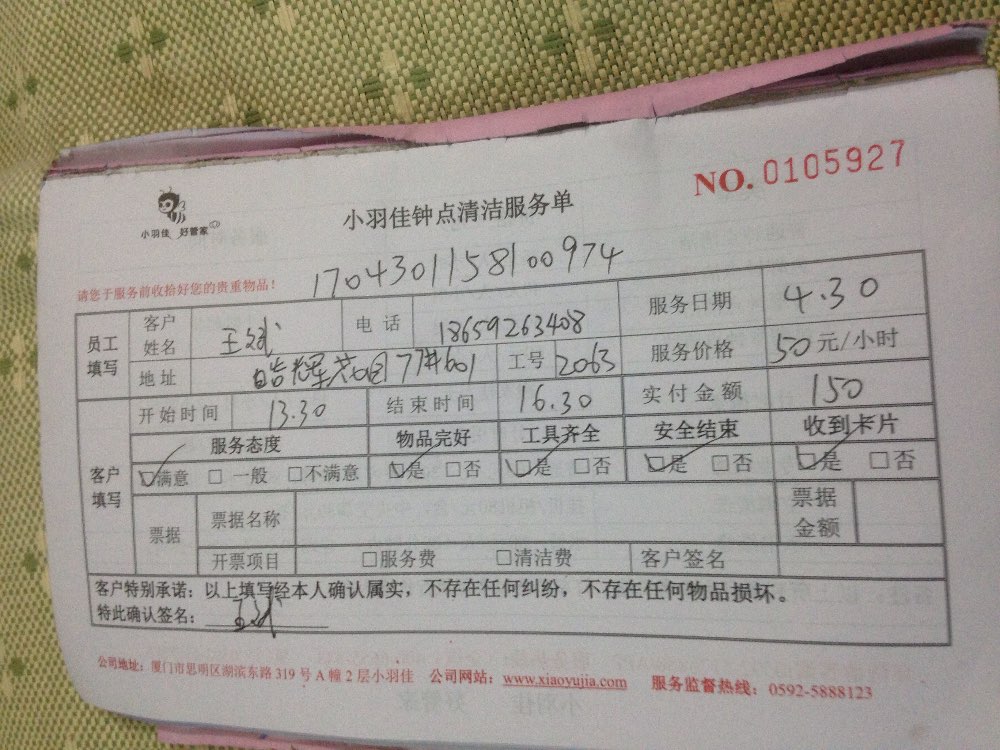 NO. 0105927
小羽佳 好管家
小羽佳钟点清洁服务单
1704301158100974
请您于服务前收拾好您的贵重物品！
员工填写 客户姓名 王斌 电话 18659263408 服务日期 4.30
地址 皓晖花园77#601 工号 2063 服务价格 50元/小时
客户填写 开始时间 13.30 结束时间 16.30 实付金额 150
服务态度 物品完好 工具齐全 安全结束 收到卡片
☑满意 □一般 □不满意 ☑是 □否 ☑是 □否 ☑是 □否 ☑是 □否
票据 票据名称 票据金额
开票项目 □服务费 □清洁费 客户签名
客户特别承诺：以上填写经本人确认属实，不存在任何纠纷，不存在任何物品损坏。
特此确认签名：王斌
公司地址：厦门市思明区湖滨东路319号A幢2层小羽佳 公司网站：www.xiaoyujia.com 服务监督热线：0592-5888123